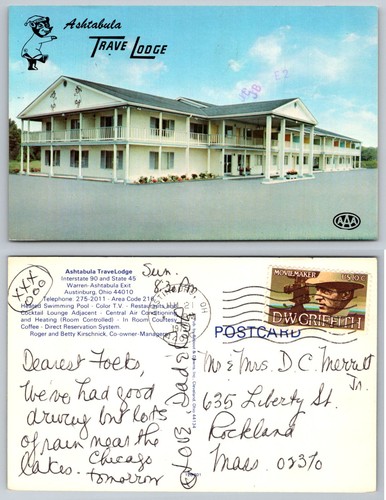 Ashtabula
TRAVELODGE
AAA
XXX
OOO
Ashtabula TraveLodge
Interstate 90 and State 45
Warren-Ashtabula Exit
Austinburg, Ohio 44010
Telephone 275-2011 - Area Code 216
Heated Swimming Pool - Color T.V. - Restaurant and
Cocktail Lounge Adjacent - Central Air Conditioning
and Heating (Room Controlled) - In Room Courtesy
Coffee - Direct Reservation System.
Roger and Betty Kirschnick, Co-owner-Managers
Sun.
8:30 PM
Dearest Folks,
We've had good
driving but lots
of rain near the
lakes. Chicago
tomorrow
Love Dad &
OH
MOVIEMAKER
US 10c
D.W. GRIFFITH
POSTCARD
Mr & Mrs. D.C. Merritt
Jr.
635 Liberty St.
Rockland
Mass. 02370